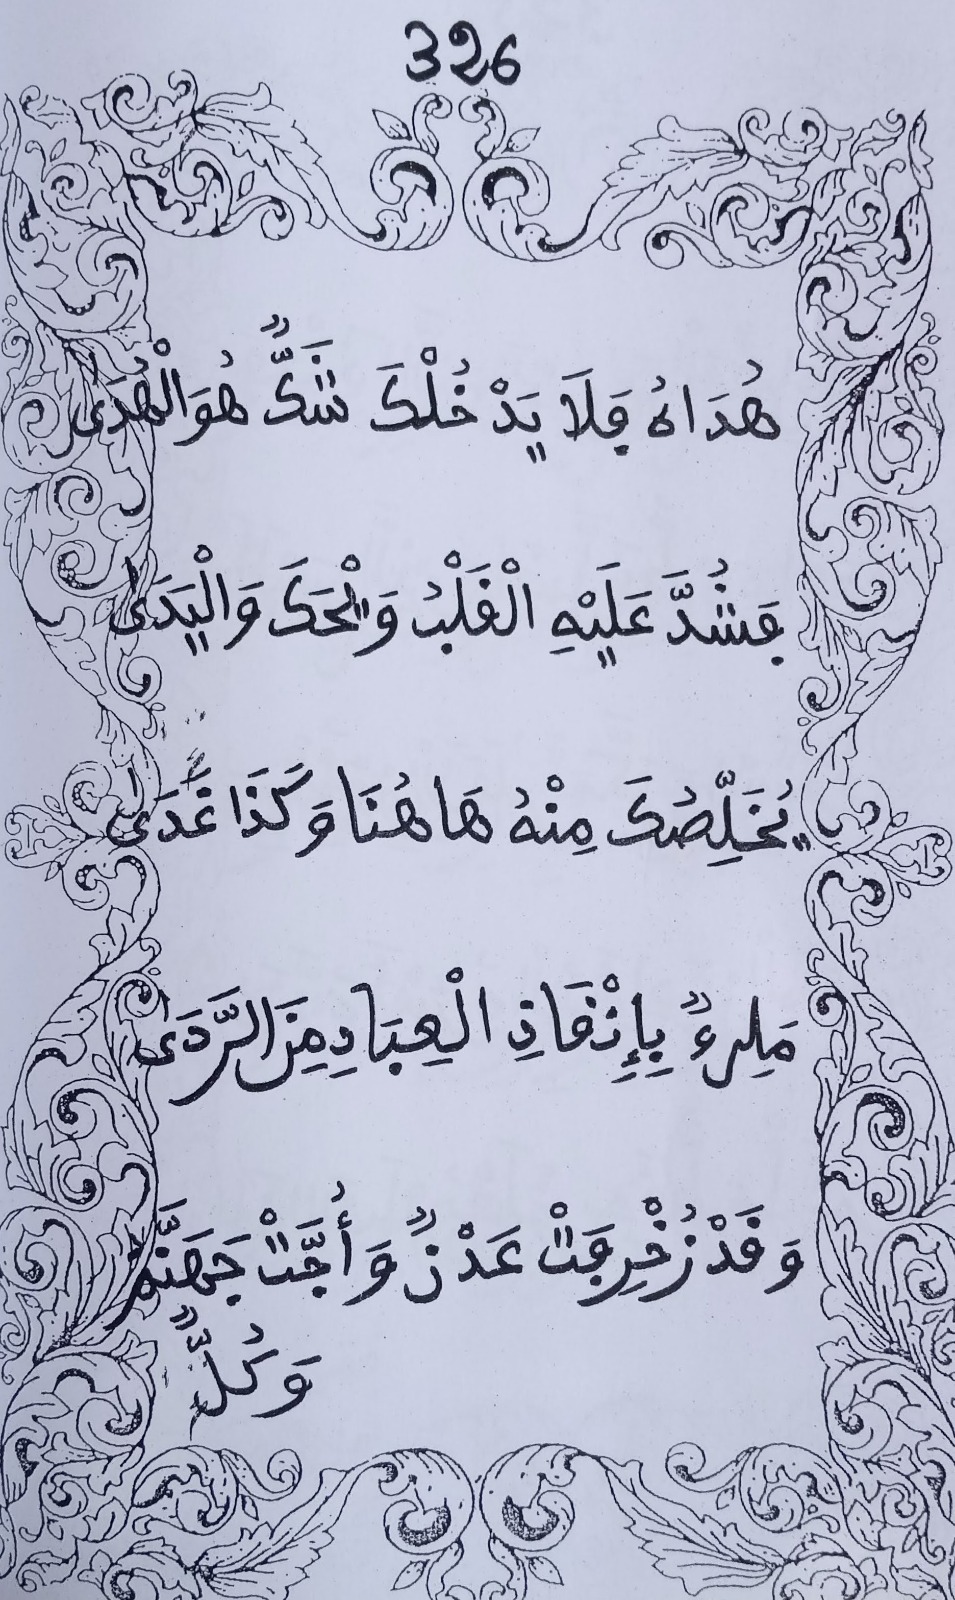 326
هُدَاهُ فَلَا يَدْخُلْكَ شَكٌّ هُوَ الْهُدَى
فَشُدَّ عَلَيْهِ الْقَلْبُ وَالْحَكَ وَالْيَدَى
يُخَلِّصُكَ مِنْهُ هَاهُنَا وَكَذَا غَدَى
مَلِىءٌ بِإِنْقَاذِ الْعِبَادِ مِنَ الرَّدَى
وَقَدْ زُخْرِفَتْ عَدْنٌ وَأُجَّتْ جَهَنَّمُ
وَكُلٌّ